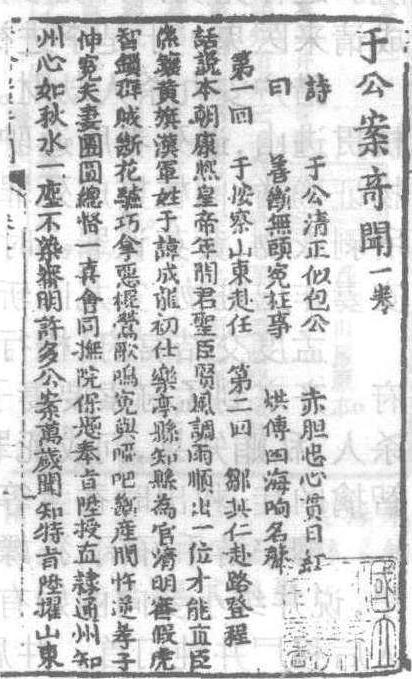 于公案奇聞一卷
詩　于公清正似包公　赤胆忠心貫日紅
曰　善斷無頭冤枉事　烘傳四海响名聲
第一回　于按察山東赴任　第二回　鄒其仁赴路登程
話說本朝康熙皇帝年間君聖臣賢風調雨順出一位才能直臣
係鑲黃旗漢軍姓于諱成龍初仕樂亭縣知縣為官清明善假虎
智鎖群賊斷花驢巧拿惡棍鶯歌鳴冤與啞吧斷産問忤逆孝子
伸冤夫妻團圓總督一真會同撫院保題奉旨陞授直隸通州知
州心如秋水一塵不染審明許多公案萬歲聞知特旨陞擢山東